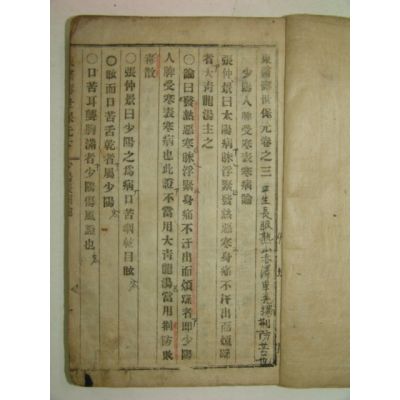 東醫壽世保元卷之三
少陽人脾受寒表寒病論
張仲景曰太陽病脉浮緊發熱惡寒身痛不汗出而煩躁
者大靑龍湯主之
○論曰發熱惡寒脉浮緊身痛不汗出而煩躁者即少陽
人脾受寒表寒病也此證不當用大靑龍湯當用荊防敗
毒散
○張仲景曰少陽之爲病口苦咽乾目眩
○眩而口苦舌乾者屬少陽
○口苦耳聾胸滿者少陽傷風證也